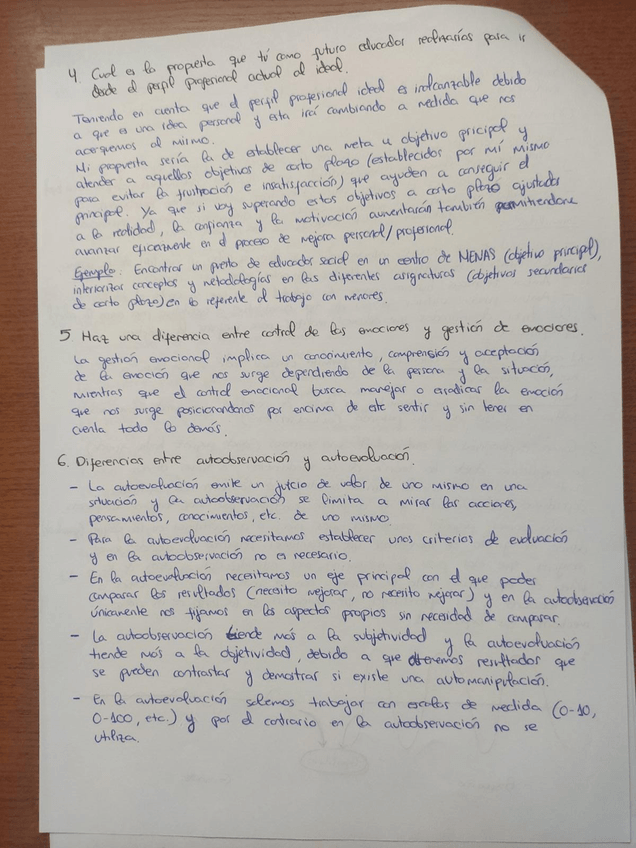 4. Cual es la propuesta que tú como futuro educador realizarías para ir
desde el perfil profesional actual al ideal.
Teniendo en cuenta que el perfil profesional ideal es inalcanzable debido
a que es una idea personal y esta irá cambiando a medida que nos
acerquemos al mismo.
Mi propuesta sería la de establecer una meta u objetivo pricipal y
atender a aquellos objetivos de corto plazo (establecidos por mí mismo
para evitar la frustración e insatisfacción) que ayuden a conseguir el
principal. Ya que si voy superando estos objetivos a corto plazo ajustados
a la realidad, la confianza y la motivación aumentarán también permitiendome
avanzar eficazmente en el proceso de mejora personal/profesional.
Ejemplo: Encontrar un puesto de educador social en un centro de MENAS (objetivo principal),
interiorizar conceptos y metodologías en las diferentes asignaturas (objetivos secundarios
de corto plazo) en lo referente al trabajo con menores.
5 Haz una diferencia entre control de las emociones y gestión de emociones.
La gestión emocional implica un conocimiento, comprensión y aceptación
de la emoción que nos surge dependiendo de la persona y la situación,
mientras que el control emocional busca manejar o erradicar la emoción
que nos surge posicionandonos por encima de este sentir y sin tener en
cuenta todo lo demás.
6. Diferencias entre autoobservación y autoevaluación.
- La autoevaluación emite un juicio de valor de uno mismo en una
situación y la autoobservación se limita a mirar las acciones,
pensamientos, conocimientos, etc. de uno mismo
- Para la autoevaluación necesitamos establecer unos criterios de evaluación
y en la autoobservación no es necesario.
- En la autoevaluación necesitamos un eje principal con el que poder
comparar los resultados (necesito mejorar, no necesito mejorar) y en la autoobservación
únicamente nos fijamos en los aspectos propios sin necesidad de comparar.
- La autoobservación tiende más a la subjetividad y la autoevaluación
tiende más a la objetividad, debido a que obtenemos resultados que
se pueden contrastar y demostrar si existe una automanipulación.
- En la autoevaluación solemos trabajar con escalas de medida (0-10,
0-100, etc.) y por el contrario en la autoobservación no se
utiliza.